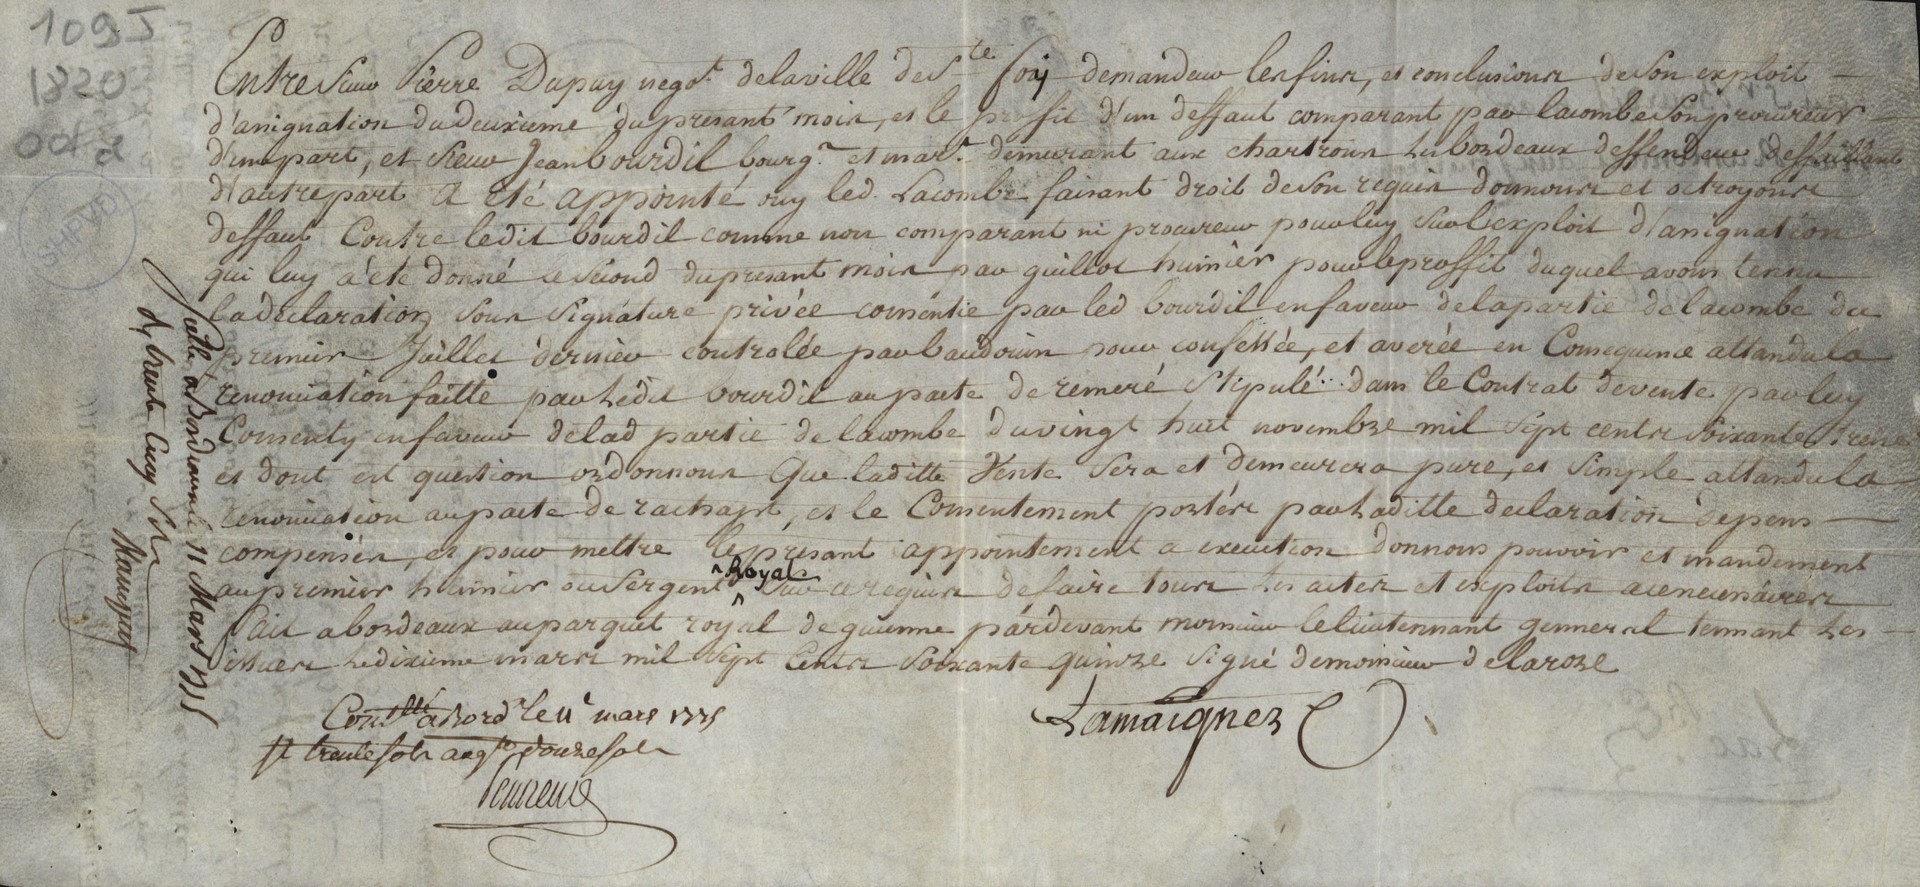 109 J
1820
001 d
SHPVD
Entre Sieur Pierre Dupuy negot. delaville de Ste foy demandeur ez fins, et conclusions de Son exploit
d'assignation du deuxieme du presant mois, et le proffit d'un deffaut comparant par lacombe Son procureur
d'une part, et Sieur Jean bourdil, bourgs. et mart. demurant aux chartrons lès bordeaux deffendeur deffaillant
d'autre part A été appointé, ouy led. Lacombe faisant droit de Son requis donnons et octroyons
deffaut Contre ledit bourdil comme non comparant ni procureur pour luy Sur l'exploit d'assignation
qui luy a été donné le Second du presant mois par guillot huissier pour le proffit duquel avons tennu
la declaration Sous Signature privée consentie par led bourdil en faveur de la partie de lacombe du
premier Juillet dernier controlée par baudouin pour confessée, et averée en Consequence attandu la
renonciation faitte par ledit bourdil au pacte de remeré Stipulé dans le Contrat de vente par luy
Consenty en faveur de lad partie de lacombe du vingt huit novembre mil Sept cents Soixante treize
et dont est question ordonnons Que laditte Vente Sera et demeurera pure, et Simple attandu la
renonciation au pacte de rachapt, et le Consentement porté par laditte declaration depens
compensés, et pour mettre le presant appointement a execution donnons pouvoir et mandement
au premier huissier ou Sergent Royal Sur ce requis de faire tous les actes et exploits a ce necessaires
Fait a bordeaux au parquet royal de guienne pardevant monsieur le lieutennant genneral tennant les
issues le dixieme mars mil Sept Cents Soixante quinze Signé de monsieur de laroze
Conllé à Bord le 11e mars 1775
rt trente sols augt douze sols
Lamaignez
Scellé à Bordeaux le 11 Mars 1775